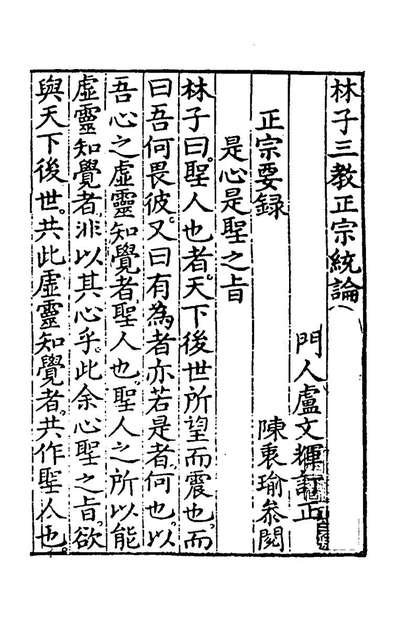 林子三教正宗統論
門人盧文輝訂正
正宗要錄
陳衷瑜叅閱
是心是聖之旨
林子曰。聖人也者。天下後世所望而震也。而
曰吾何畏彼。又曰有為者亦若是者。何也。以
吾心之虛靈知覺者。聖人也。聖人之所以能
虛靈知覺者。非以其心乎。此余心聖之旨。欲
與天下後世。共此虛靈知覺者。共作聖人也。